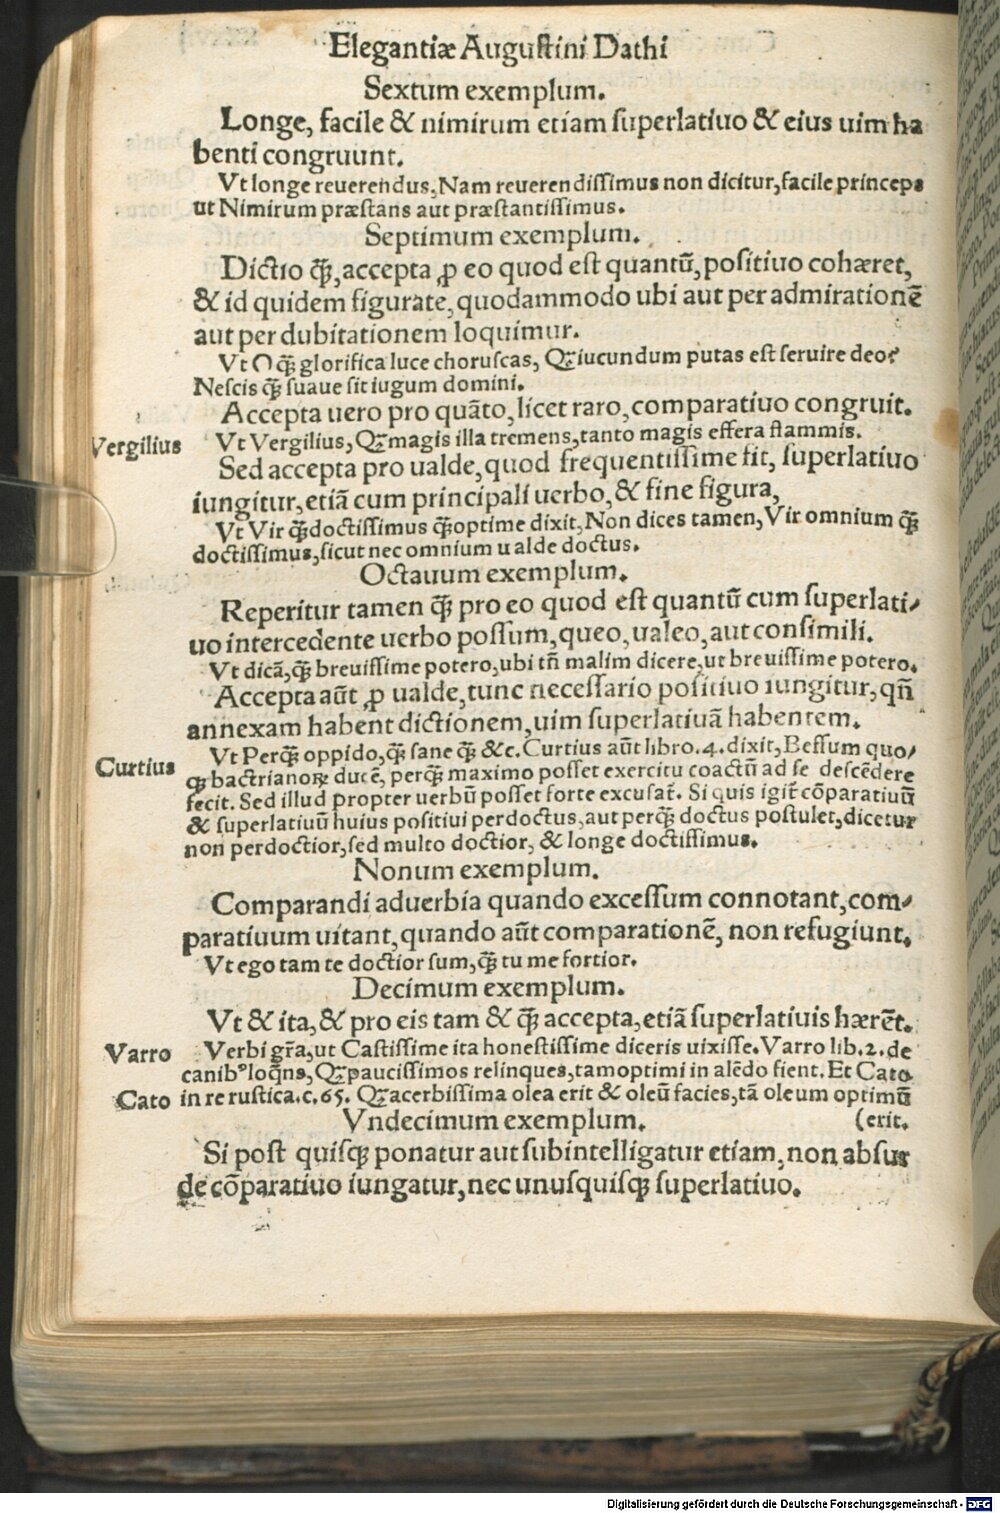 Elegantiæ Augustini Dathi
Sextum exemplum.
Longe, facile & nimirum etiam superlatiuo & eius uim ha
benti congruunt.
Vt longe reuerendus, Nam reuerendissimus non dicitur, facile princeps
ut Nimirum præstans aut præstantissimus.
Septimum exemplum.
Dictio q̃, accepta ꝓ eo quod est quantũ, positiuo cohæret,
& id quidem figurate, quodammodo ubi aut per admirationẽ
aut per dubitationem loquimur.
Vt O q̃ glorifica luce choruscas, Qꝫ iucundum putas est seruire deo?
Nescis q̃ suaue sit iugum domini.
Accepta uero pro quãto, licet raro, comparatiuo congruit.
Vergilius Vt Vergilius, Qꝫ magis illa tremens, tanto magis effera flammis.
Sed accepta pro ualde, quod frequentissime fit, superlatiuo
iungitur, etiã cum principali uerbo, & sine figura,
Vt Vir q̃ doctissimus q̃ optime dixit, Non dices tamen, Vir omnium q̃
doctissimus, sicut nec omnium ualde doctus.
Octauum exemplum.
Reperitur tamen q̃ pro eo quod est quantũ cum superlati/
uo intercedente uerbo possum, queo, ualeo, aut consimili.
Vt dicã, q̃ breuissime potero, ubi tñ malim dicere, ut breuissime potero.
Accepta aũt ꝓ ualde, tunc necessario positiuo iungitur, qñ
annexam habent dictionem, uim superlatiuã habentem.
Vt Perq̃ oppido, q̃ sane q̃ &c. Curtius aũt libro.4. dixit, Bessum quo/
Curtius qꝫ bactrianoꝝ ducẽ, perq̃ maximo posset exercitu coactũ ad se descẽdere
fecit. Sed illud propter uerbũ posset forte excusat̃. Si quis igit̃ cõparatiuũ
& superlatiuũ huius positiui perdoctus, aut perq̃ doctus postulet, dicetur
non perdoctior, sed multo doctior, & longe doctissimus.
Nonum exemplum.
Comparandi aduerbia quando excessum connotant, com/
paratiuum uitant, quando aũt comparationẽ, non refugiunt.
Vt ego tam te doctior sum, q̃ tu me fortior.
Decimum exemplum.
Vt & ita, & pro eis tam & q̃ accepta, etiã superlatiuis hærẽt.
Varro Verbi gr̃a, ut Castissime ita honestissime diceris uixisse. Varro lib.2. de
canibꝰ loq̃ns, Qꝫ paucissimos relinques, tam optimi in alẽdo fient. Et Cato
Cato in re rustica.c.65. Qꝫ acerbissima olea erit & oleũ facies, tã oleum optimũ
Vndecimum exemplum. (erit.
Si post quisqꝫ ponatur aut subintelligatur etiam, non absur
de cõparatiuo iungatur, nec unusquisqꝫ superlatiuo.
Digitalisierung gefördert durch die Deutsche Forschungsgemeinschaft - DFG